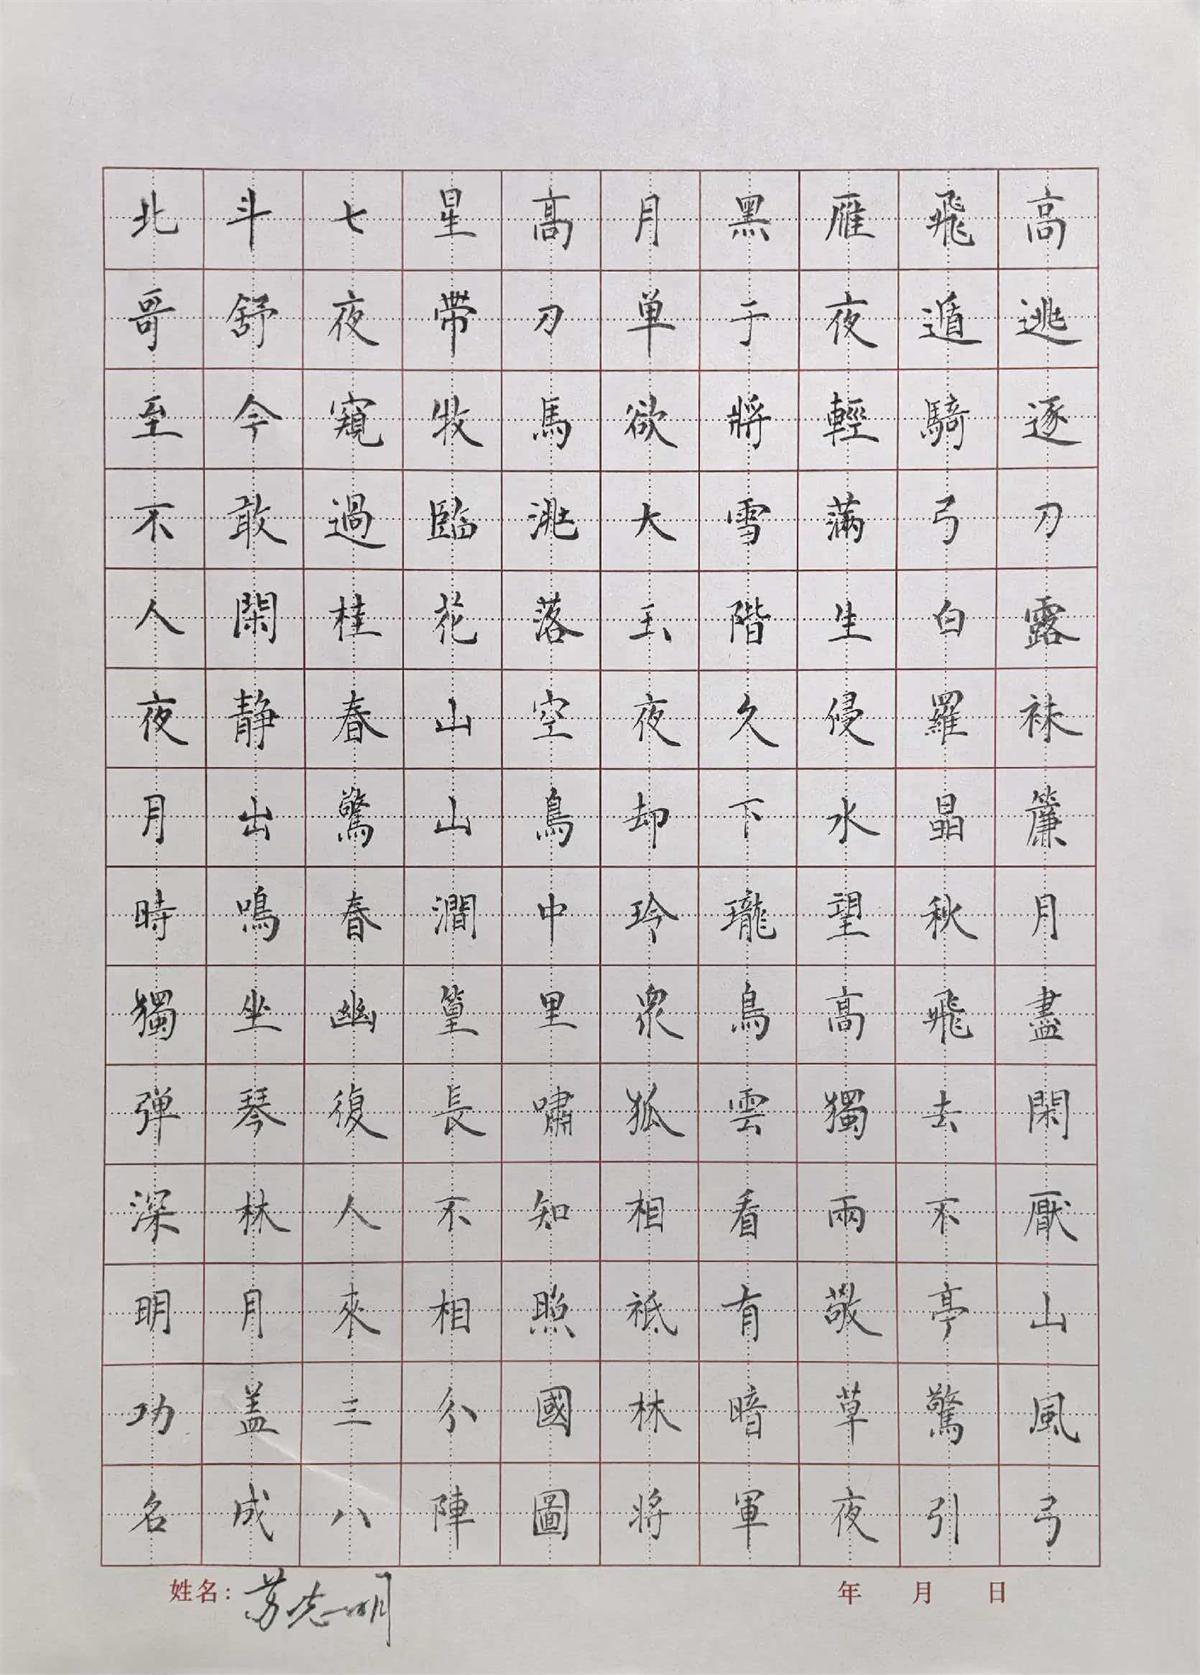 北斗七星高月黑雁飛高
哥舒夜帶刀单于夜遁逃
至今窺牧馬欲將輕騎逐
不敢過臨洮大雪滿弓刀
人閑桂花落玉階生白露
夜静春山空夜久侵羅袜
月出驚山鳥却下水晶簾
時鳴春澗中玲瓏望秋月
獨坐幽篁里衆鳥高飛盡
弹琴復長嘯狐雲獨去閑
深林人不知相看兩不厭
明月來相照祇有敬亭山
功盖三分國林暗草驚風
名成八陣圖將軍夜引弓
姓名：苏志明 年 月 日